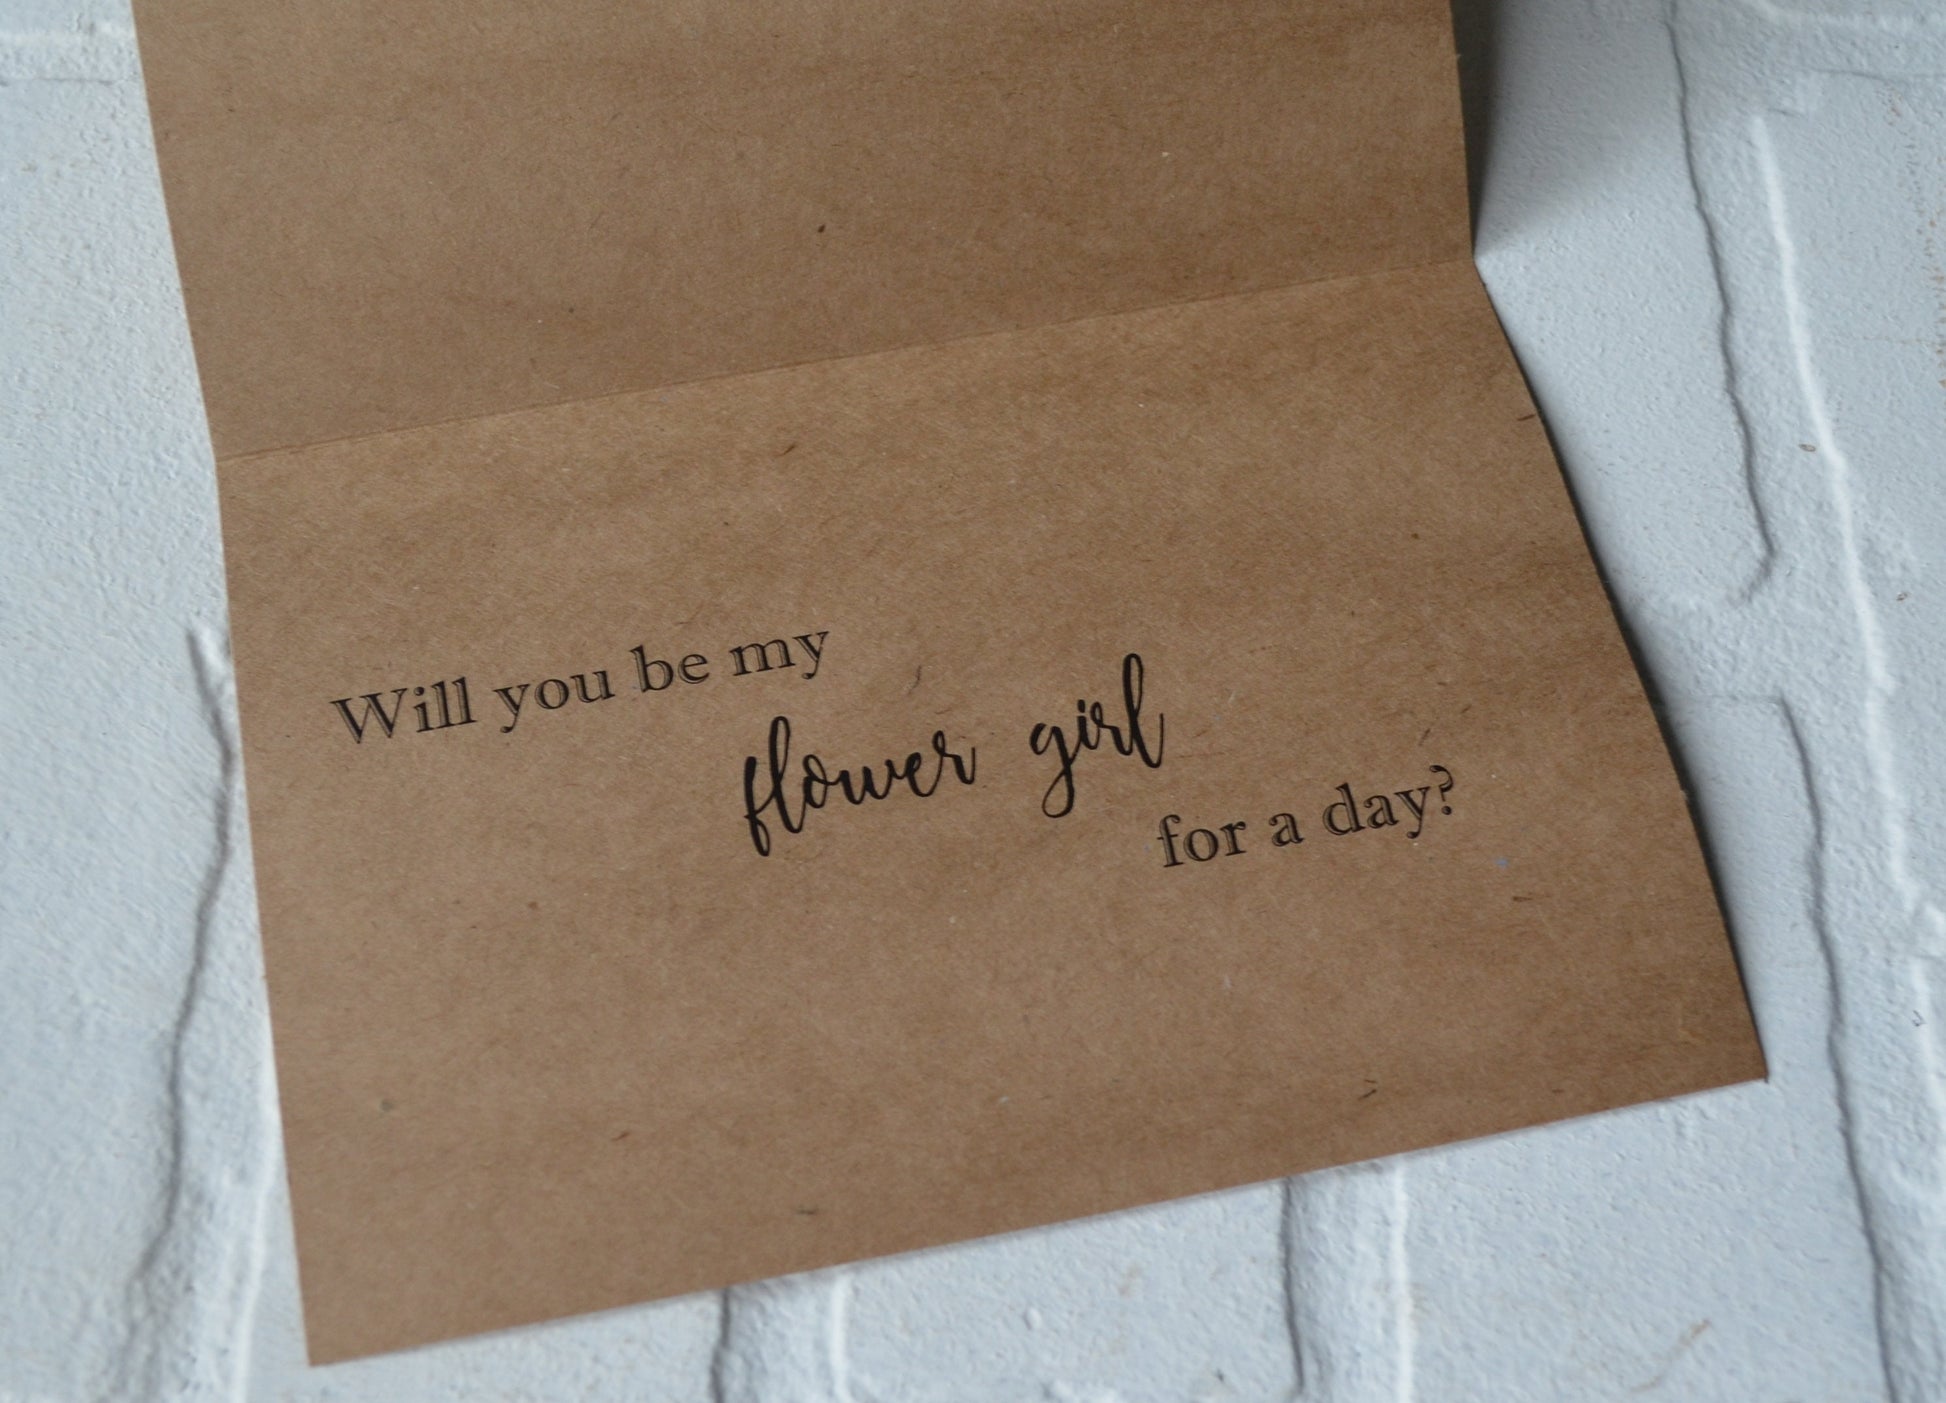 Will you be my
flower girl
for a day?